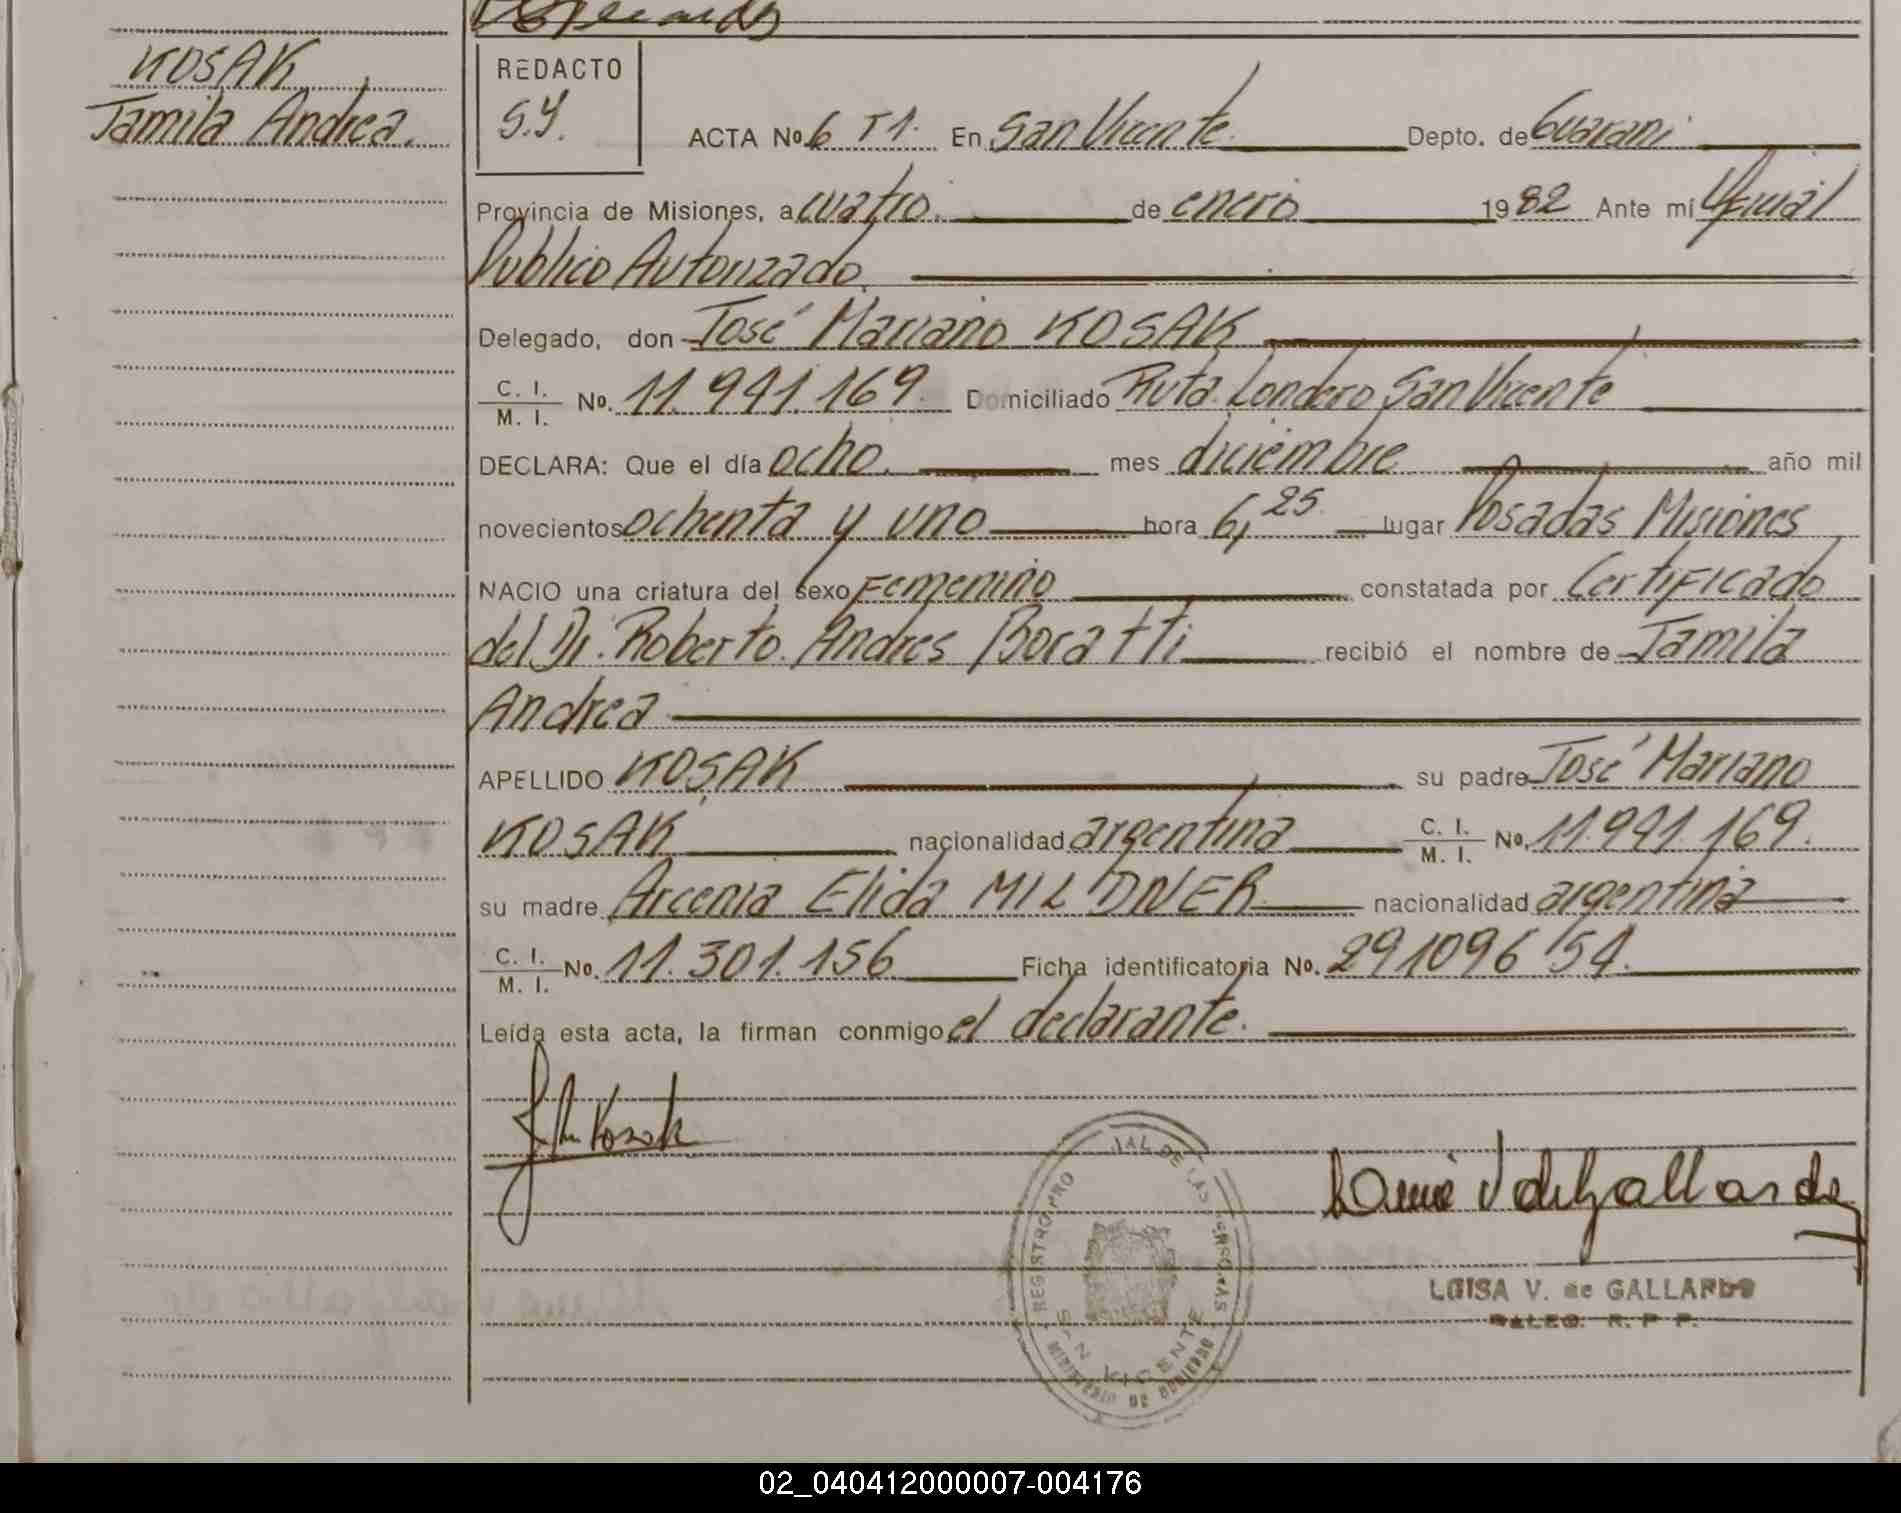 KOSAK
Jamila Andrea.
REDACTO
S.Y.
ACTA No. 6 T1. En San Vicente. Depto. de Guarani
Provincia de Misiones, a cuatro. de enero 1982 Ante mí Oficial
Publico Autorizado.
Delegado, don José Mariano KOSAK
C. I. / M. I. No. 11.941.169. Domiciliado Ruta Londero San Vicente
DECLARA: Que el día ocho. mes diciembre año mil
novecientos ochenta y uno hora 6,25. lugar Posadas Misiones
NACIO una criatura del sexo Femenino constatada por Certificado
del Dr. Roberto Andres Boratti recibió el nombre de Jamila
Andrea
APELLIDO KOSAK su padre José Mariano
KOSAK nacionalidad argentina C. I. / M. I. No. 11.941.169.
su madre Arcenia Elida MILDNER nacionalidad argentina
C. I. / M. I. No. 11.301.156 Ficha identificatoria No. 291096/54.
Leída esta acta, la firman conmigo el declarante.
Kosak
V de Gallardo
REGISTRO PRO JAL DE LAS PERSONAS
SAN VICENTE
MINISTERIO DE GOBIERNO
LUISA V. de GALLARDO
R. P. P.
02_040412000007-004176